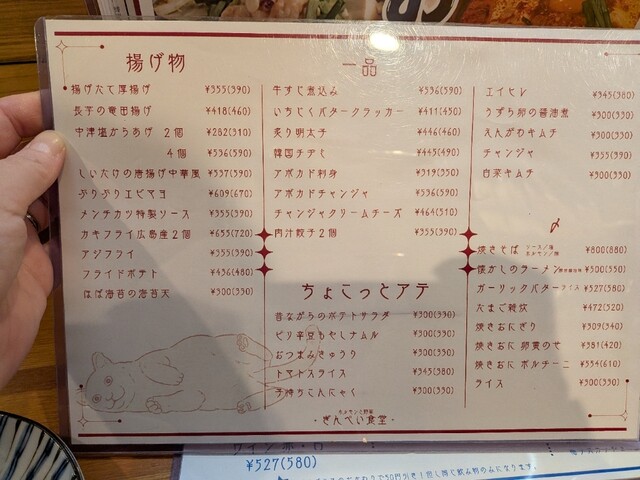 揚げ物
揚げたて厚揚げ ¥355(390)
長芋の竜田揚げ ¥418(460)
中津塩からあげ 2個 ¥282(310)
4個 ¥536(590)
しいたけの唐揚げ中華風 ¥537(590)
ぷりぷりエビマヨ ¥609(670)
メンチカツ特製ソース ¥355(390)
カキフライ広島産2個 ¥655(720)
アジフライ ¥355(390)
フライドポテト ¥436(480)
のは海苔の海苔天 ¥300(330)
一品
牛すじ煮込み ¥536(590)
いちじくバタークラッカー ¥411(450)
炙り明太子 ¥446(460)
韓国チヂミ ¥445(490)
アボカド刺身 ¥319(350)
アボカドチャンジャ ¥536(590)
チャンジャクリームチーズ ¥464(510)
肉汁餃子2個 ¥355(390)
ちょこっとアテ
昔ながらのポテトサラダ ¥300(330)
ピリ辛豆もやしナムル ¥300(330)
おつまみきゅうり ¥300(330)
トマトスライス ¥345(380)
手持ちこんにゃく ¥300(330)
エイヒレ ¥345(380)
うずら卵の醤油煮 ¥300(330)
えんがわキムチ ¥300(330)
チャンジャ ¥355(390)
白菜キムチ ¥300(330)
〆
焼きそば ¥800(880)
懐かしのラーメン ¥500(550)
ガーリックバターライス ¥527(580)
たまご雑炊 ¥472(520)
焼きおにぎり ¥309(340)
焼きおに 卵黄のせ ¥381(420)
焼きおに ポルチーニ ¥554(610)
ライス ¥300(330)
ホルモンと野菜
・ぎんぺい食堂・
¥527(580)